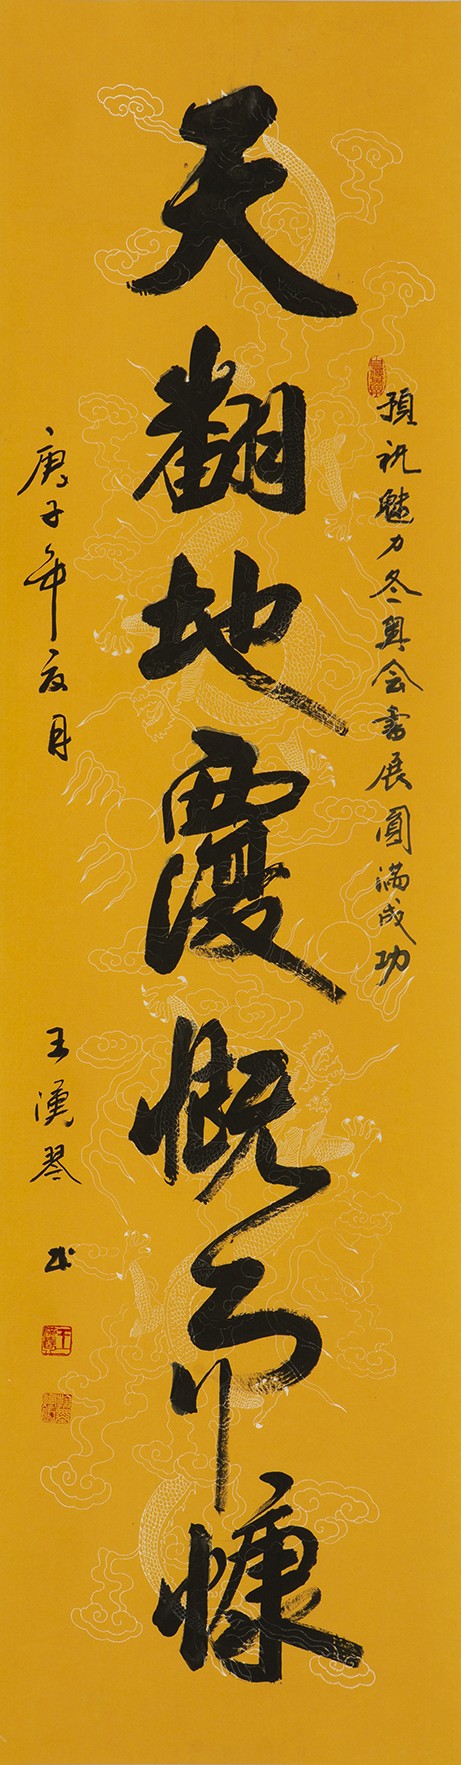 預祝魅力冬奥会書展圓滿成功
天翻地覆慨而慷
庚子年夏月 王漢琴 书